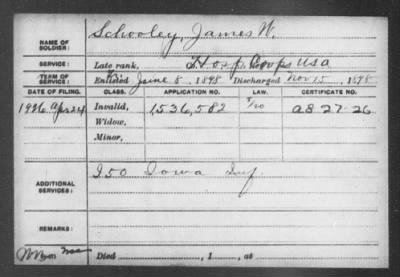 NAME OF SOLDIER: Schooley, James W.
SERVICE: Late rank, Hosp. Corps USA
TERM OF SERVICE: Enlisted June 8, 1898 Discharged Nov 15, 1898
DATE OF FILING. CLASS. APPLICATION NO. LAW. CERTIFICATE NO.
1926 Apr 24 Invalid, 1,536,582 A 8-27-26
Widow,
Minor,
ADDITIONAL SERVICES: I 50 Iowa Inf.
REMARKS:
Died , 1 , at